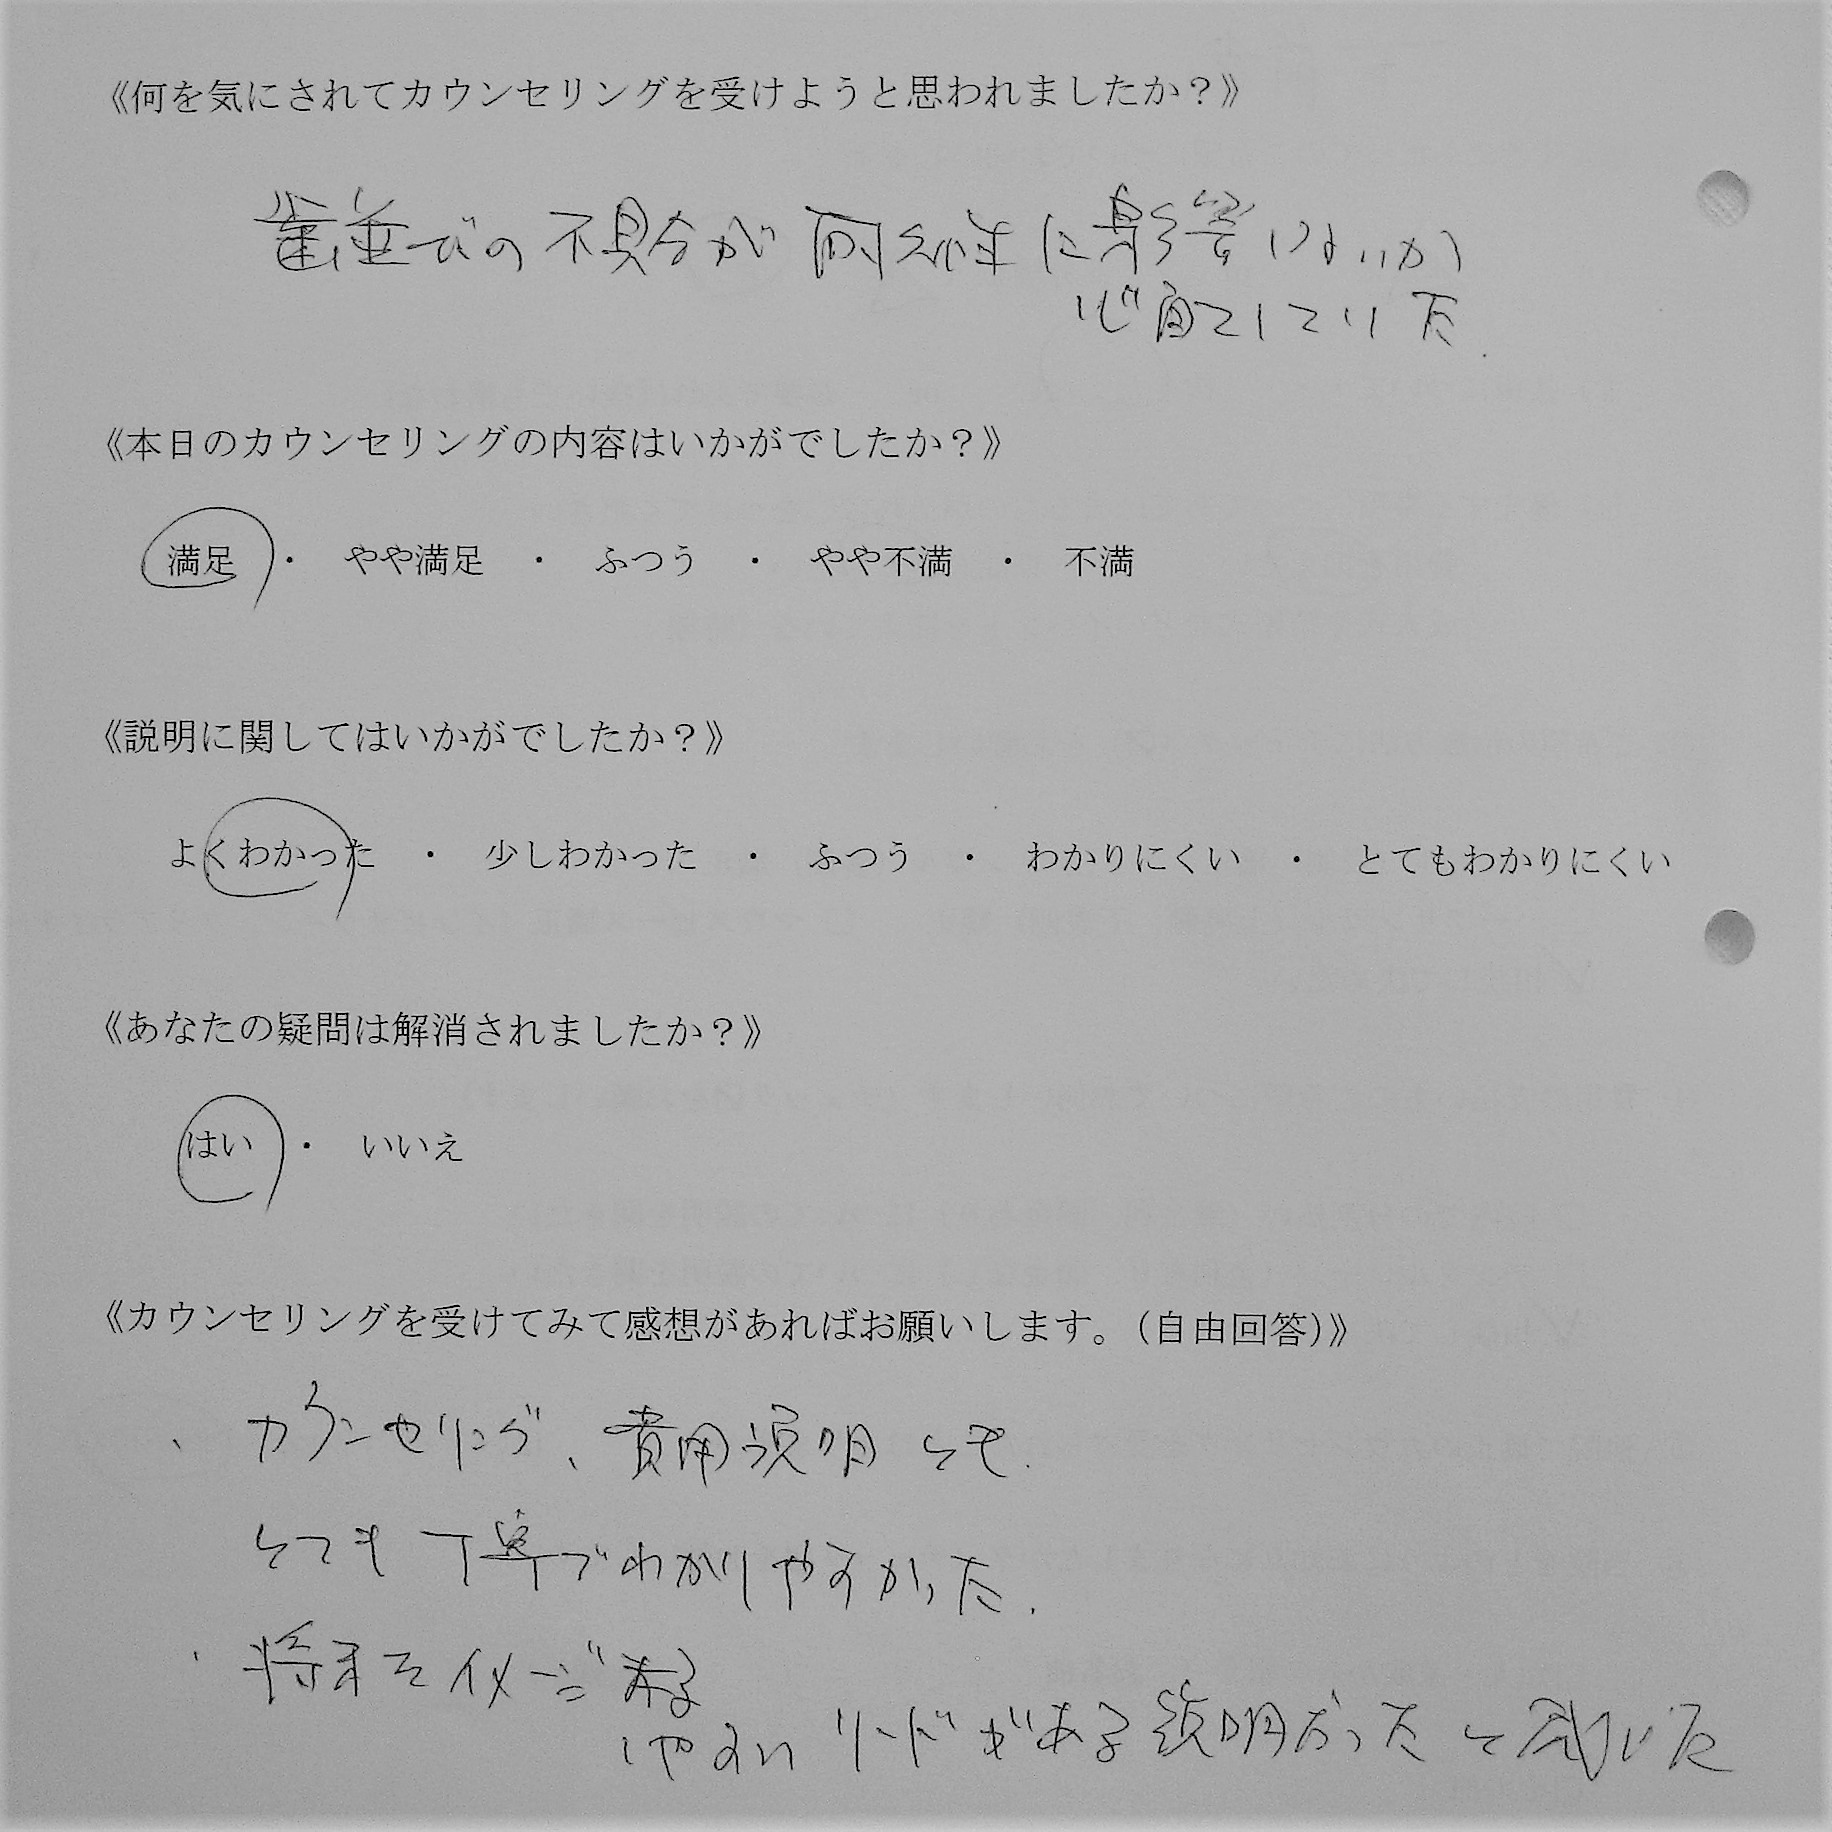 《何を気にされてカウンセリングを受けようと思われましたか？》
歯並びの不具合が耐久性に影響しないか
心配していた.
《本日のカウンセリングの内容はいかがでしたか？》
満足 ・ やや満足 ・ ふつう ・ やや不満 ・ 不満
《説明に関してはいかがでしたか？》
よくわかった ・ 少しわかった ・ ふつう ・ わかりにくい ・ とてもわかりにくい
《あなたの疑問は解消されましたか？》
はい ・ いいえ
《カウンセリングを受けてみて感想があればお願いします。（自由回答）》
・ カウンセリング、費用説明とも.
とても丁寧でわかりやすかった.
・ 将来をイメージ
しやすい リードがある説明だったと